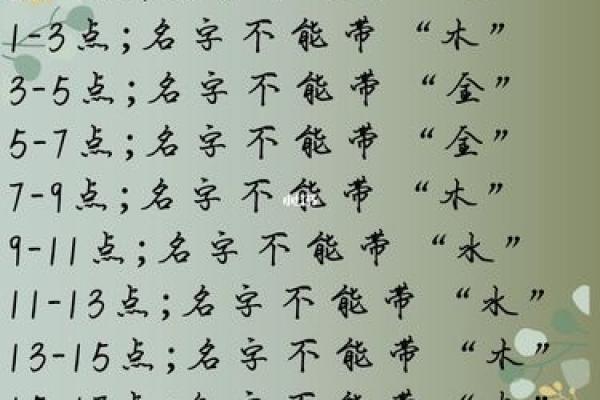 1-3点;名字不能带“木”
3-5点;名字不能带“金”
5-7点;名字不能带“金”
7-9点;名字不能带“木”
9-11点;名字不能带“水”
11-13点;名字不能带“水”
13-15点;名字不能带“木”